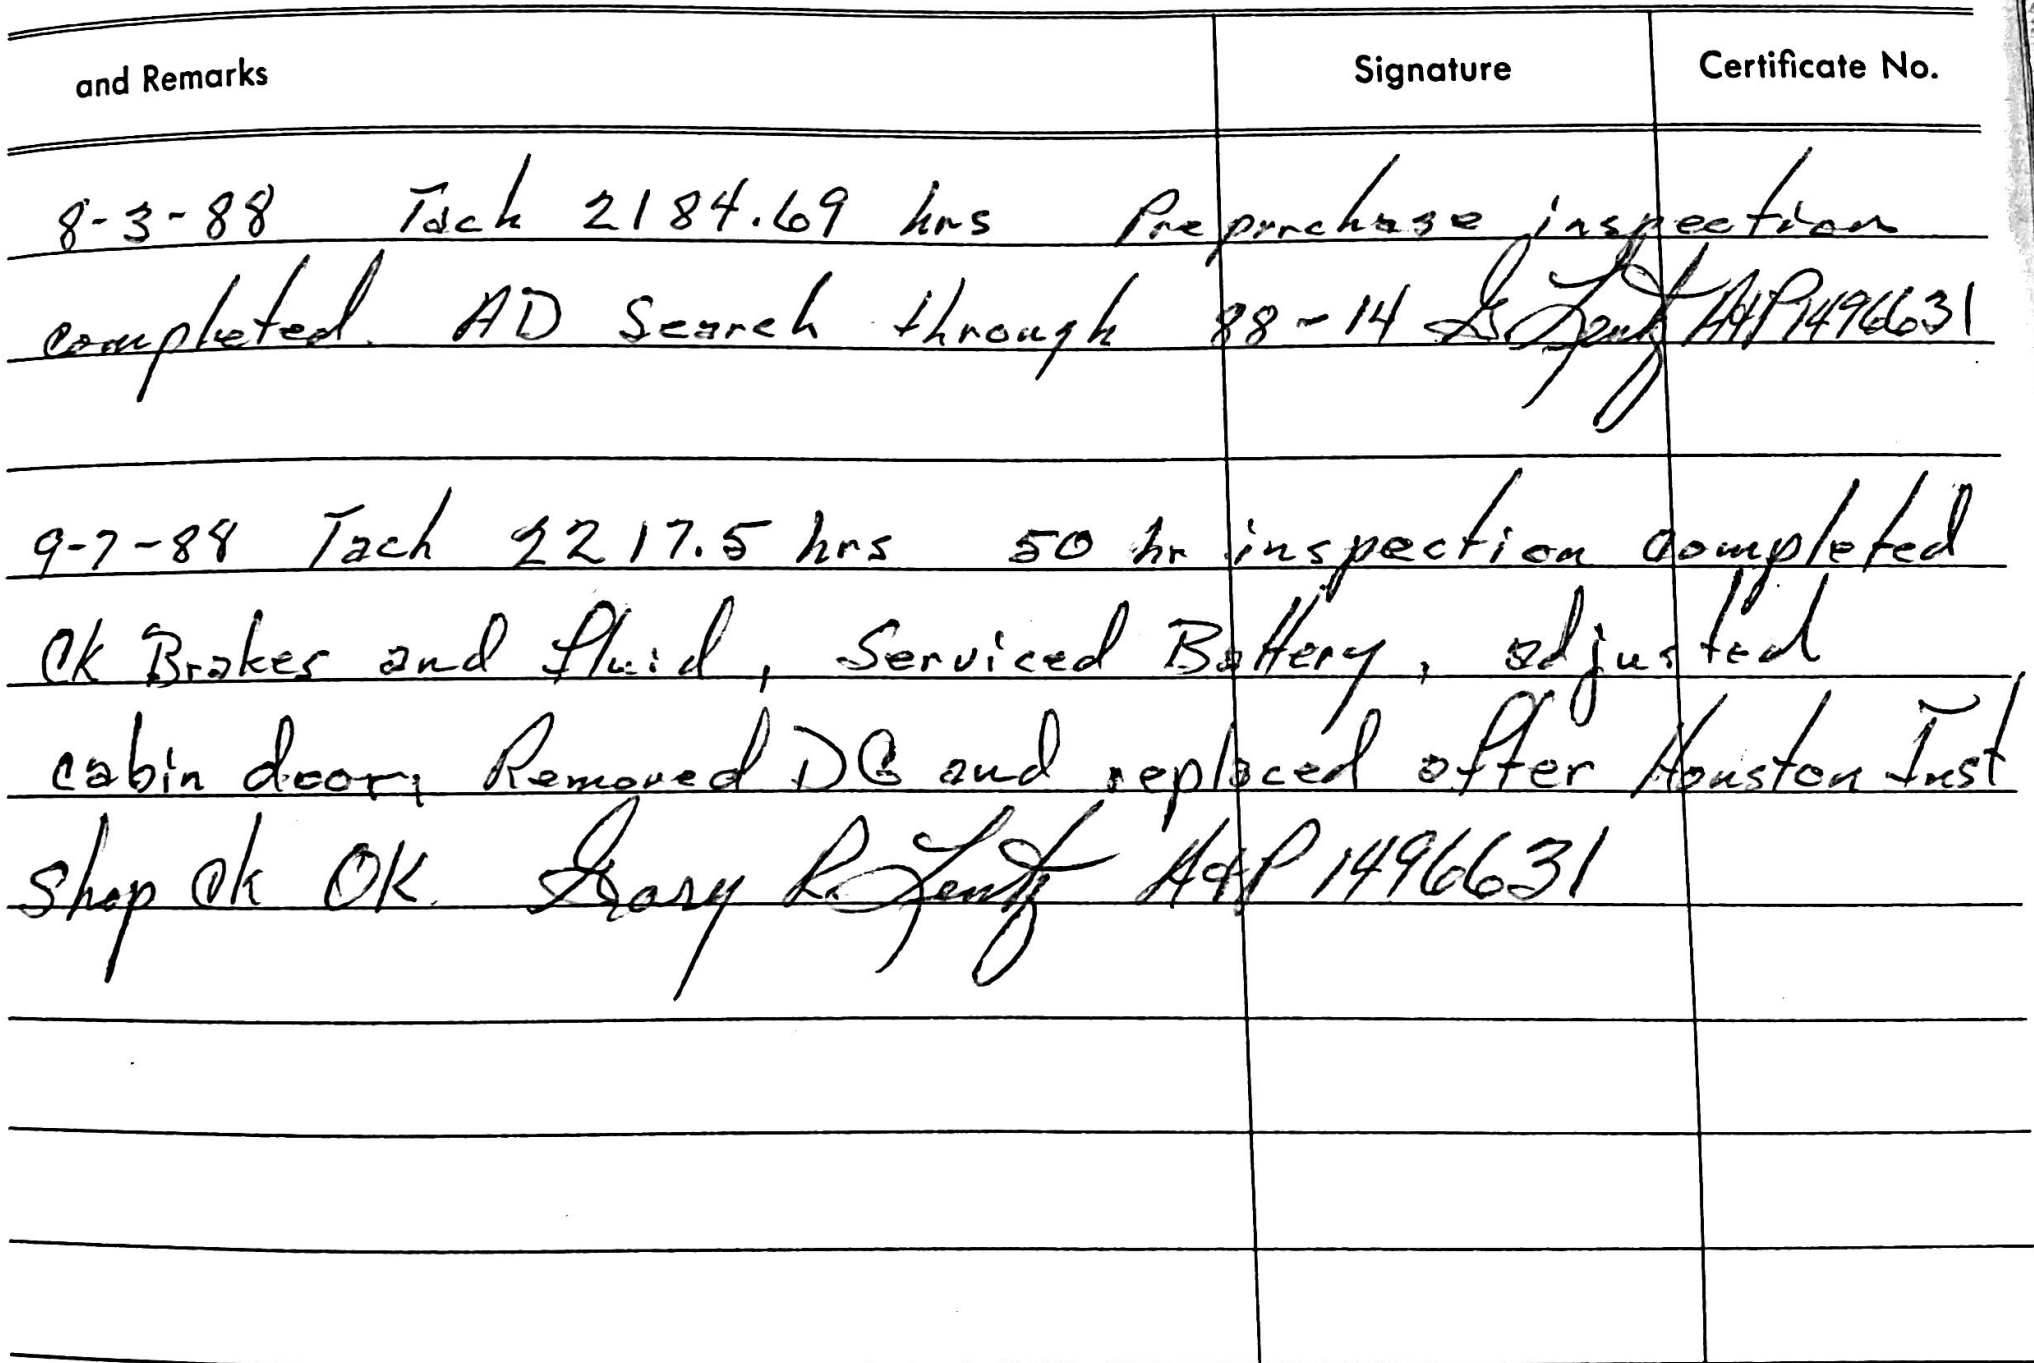 and Remarks Signature Certificate No.
8-3-88 Tach 2184.69 hrs Prepurchase inspection
completed. AD Search through 88-14 G. Lentz A&P 1496631
9-7-88 Tach 2217.5 hrs 50 hr inspection completed
CK Brakes and fluid, Serviced Battery, adjusted
cabin door, Removed DG and replaced after Houston Inst
shop ck OK. Gary R. Lentz A&P 1496631